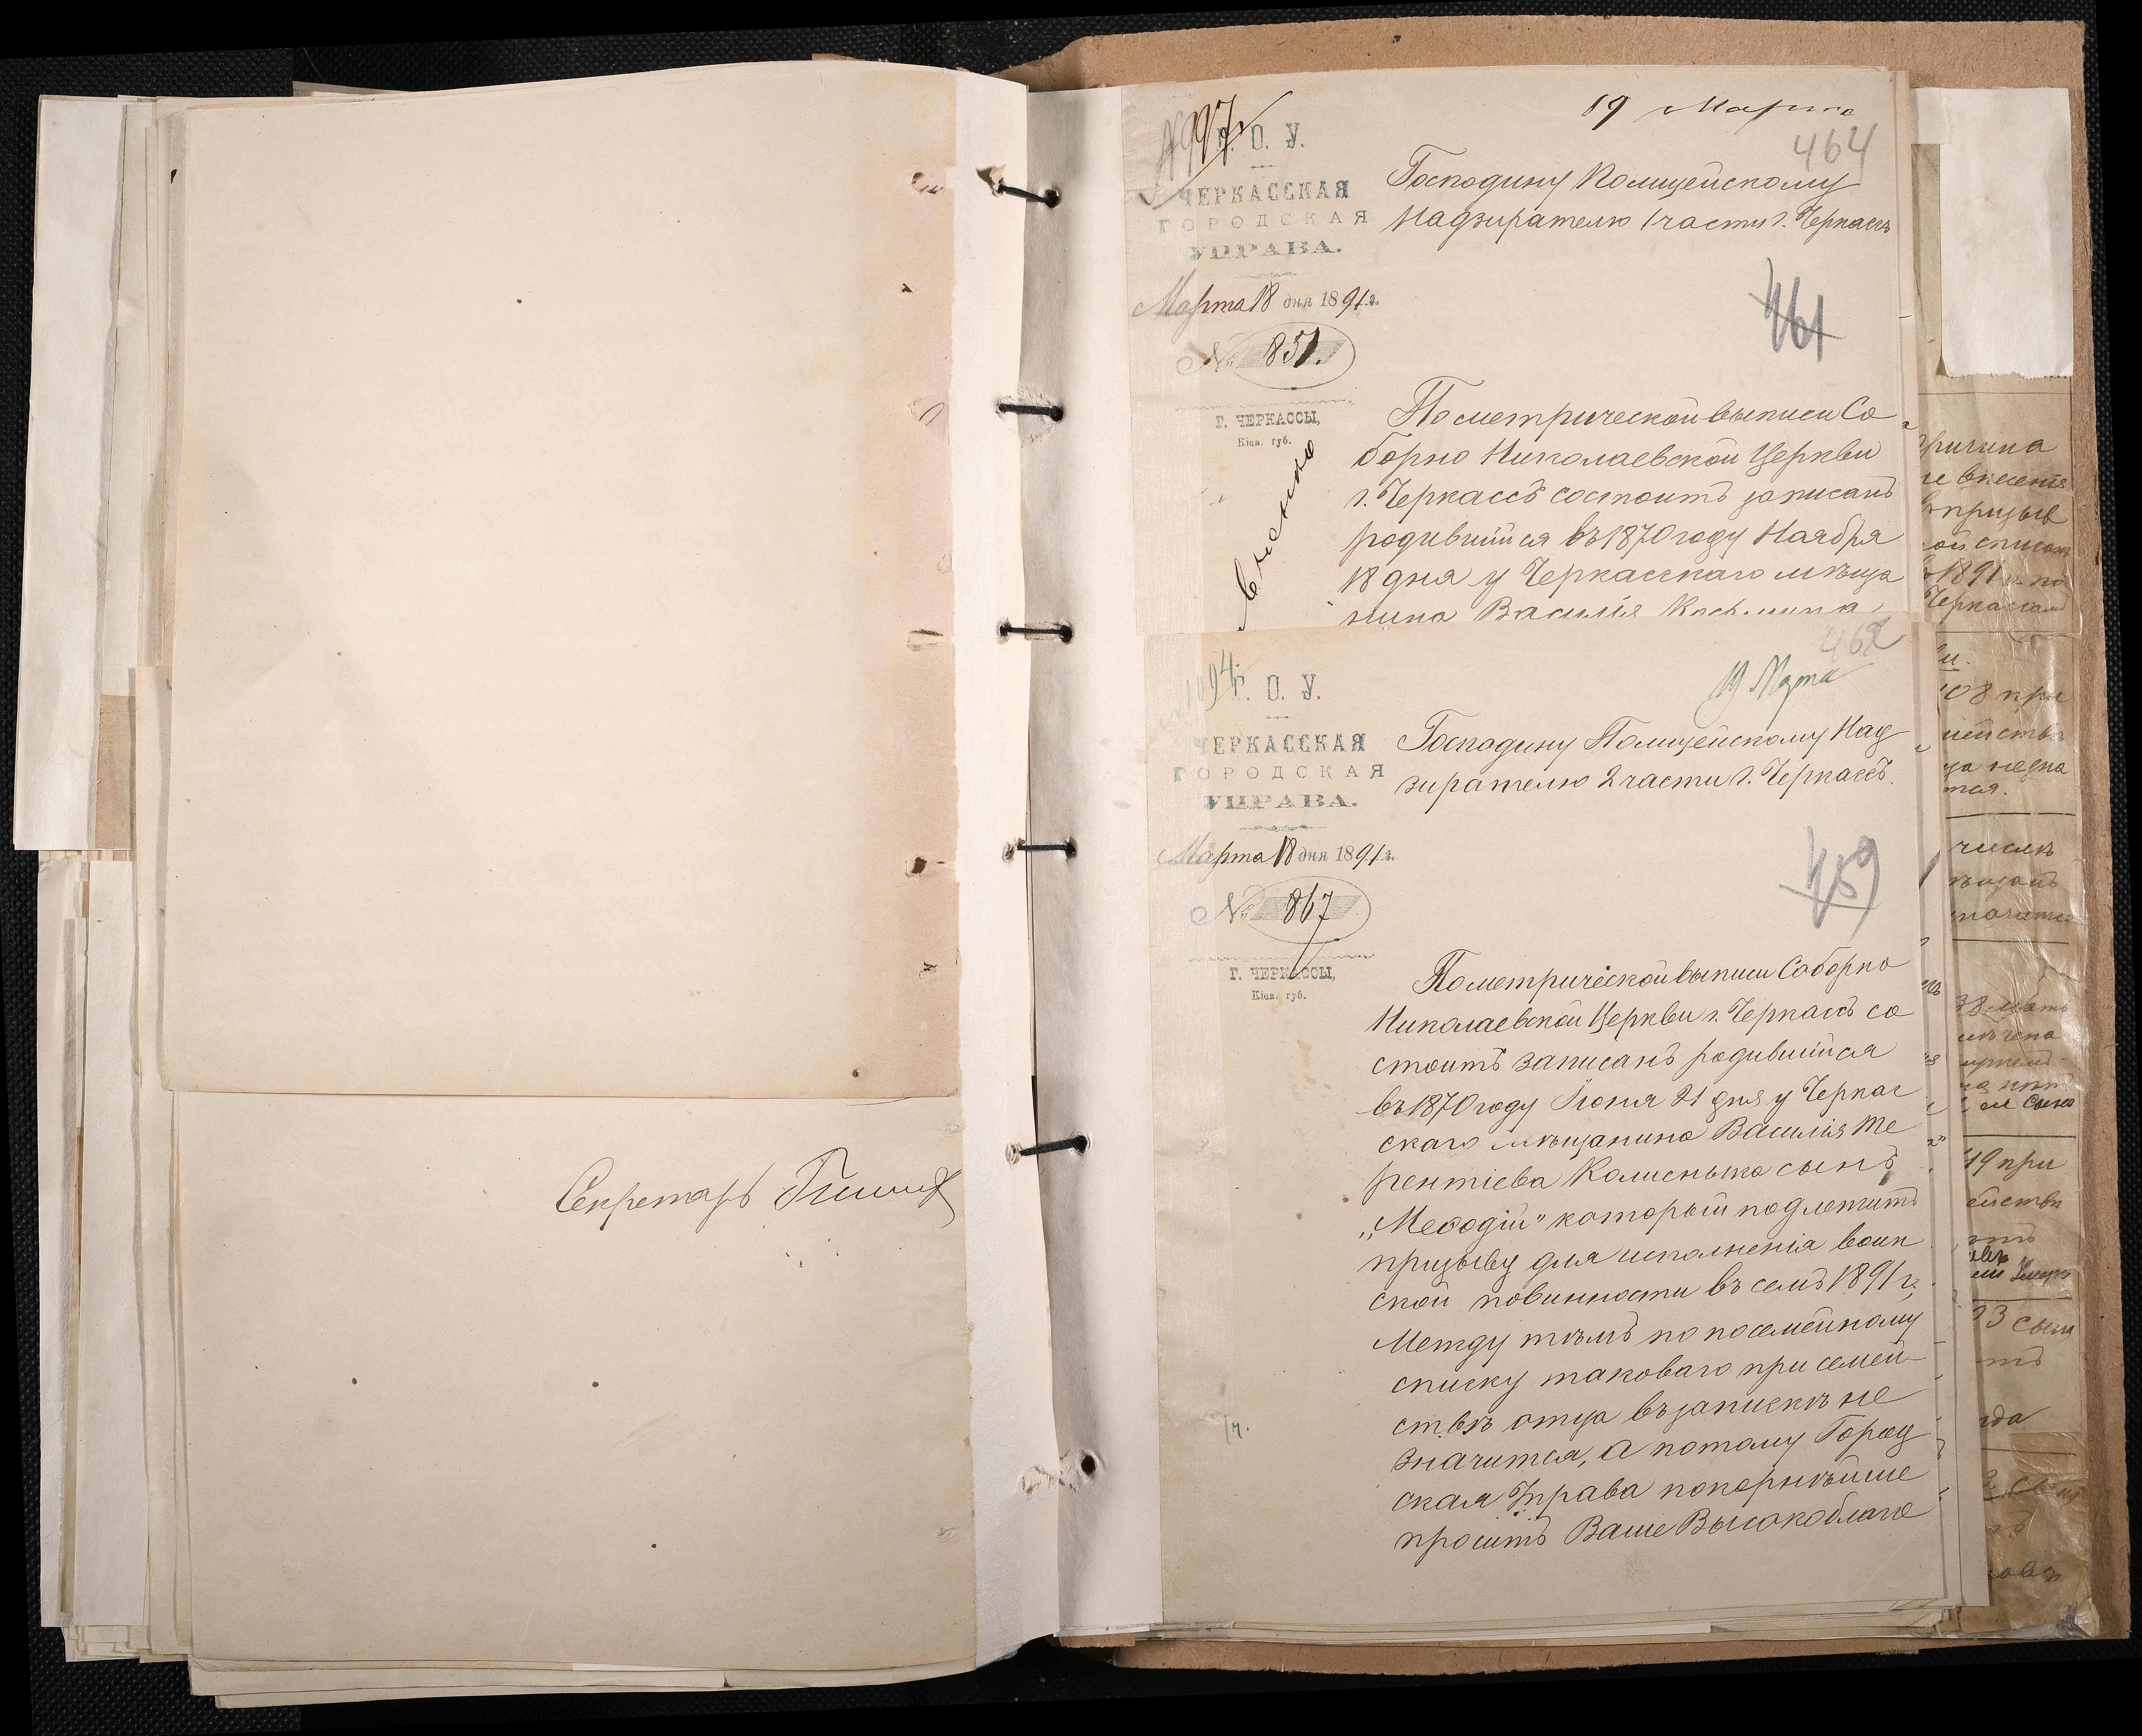 Секретарь
19 Марта
464
997
Г. О. У.
ЧЕРКАССКАЯ
ГОРОДСКАЯ
УПРАВА.
Марта 18 дня 1891 г.
№ 851.
Г. ЧЕРКАССЫ,
Кіев. губ.
Господину Полицейскому
Надзирателю 1 части г. Черкассъ
461
По метрической выписи Со
борно Николаевской Церкви
г. Черкассъ состоитъ записанъ
родившийся въ 1870 году Ноября
18 дня у Черкасскаго мѣща
нина Василія
462
19 Марта
Г. О. У.
ЧЕРКАССКАЯ
ГОРОДСКАЯ
УПРАВА.
Марта 18 дня 1891 г.
№ 867
Г. ЧЕРКАССЫ,
Кіев. губ.
Господину Полицейскому Над
зирателю 2 части г. Черкассъ.
459
По метрической выписи Соборно
Николаевской Церкви г. Черкассъ со
стоитъ записанъ родившийся
въ 1870 году Іюня 21 дня у Черкас
скаго мѣщанина Василія Те
рентіева Каменька сынъ
„Меѳодій" который подлежитъ
призыву для исполненія воин
ской повинности въ семъ 1891 г.
Между тѣмъ по посемейному
списку таковаго при семей
ствѣ отца въ запискѣ не
значится, а потому Город
ская Управа покорнѣйше
проситъ Ваше Высокоблаго
причина
не внесенія
въ призыв
ой списокъ
1891 г. по
108 при
19 при